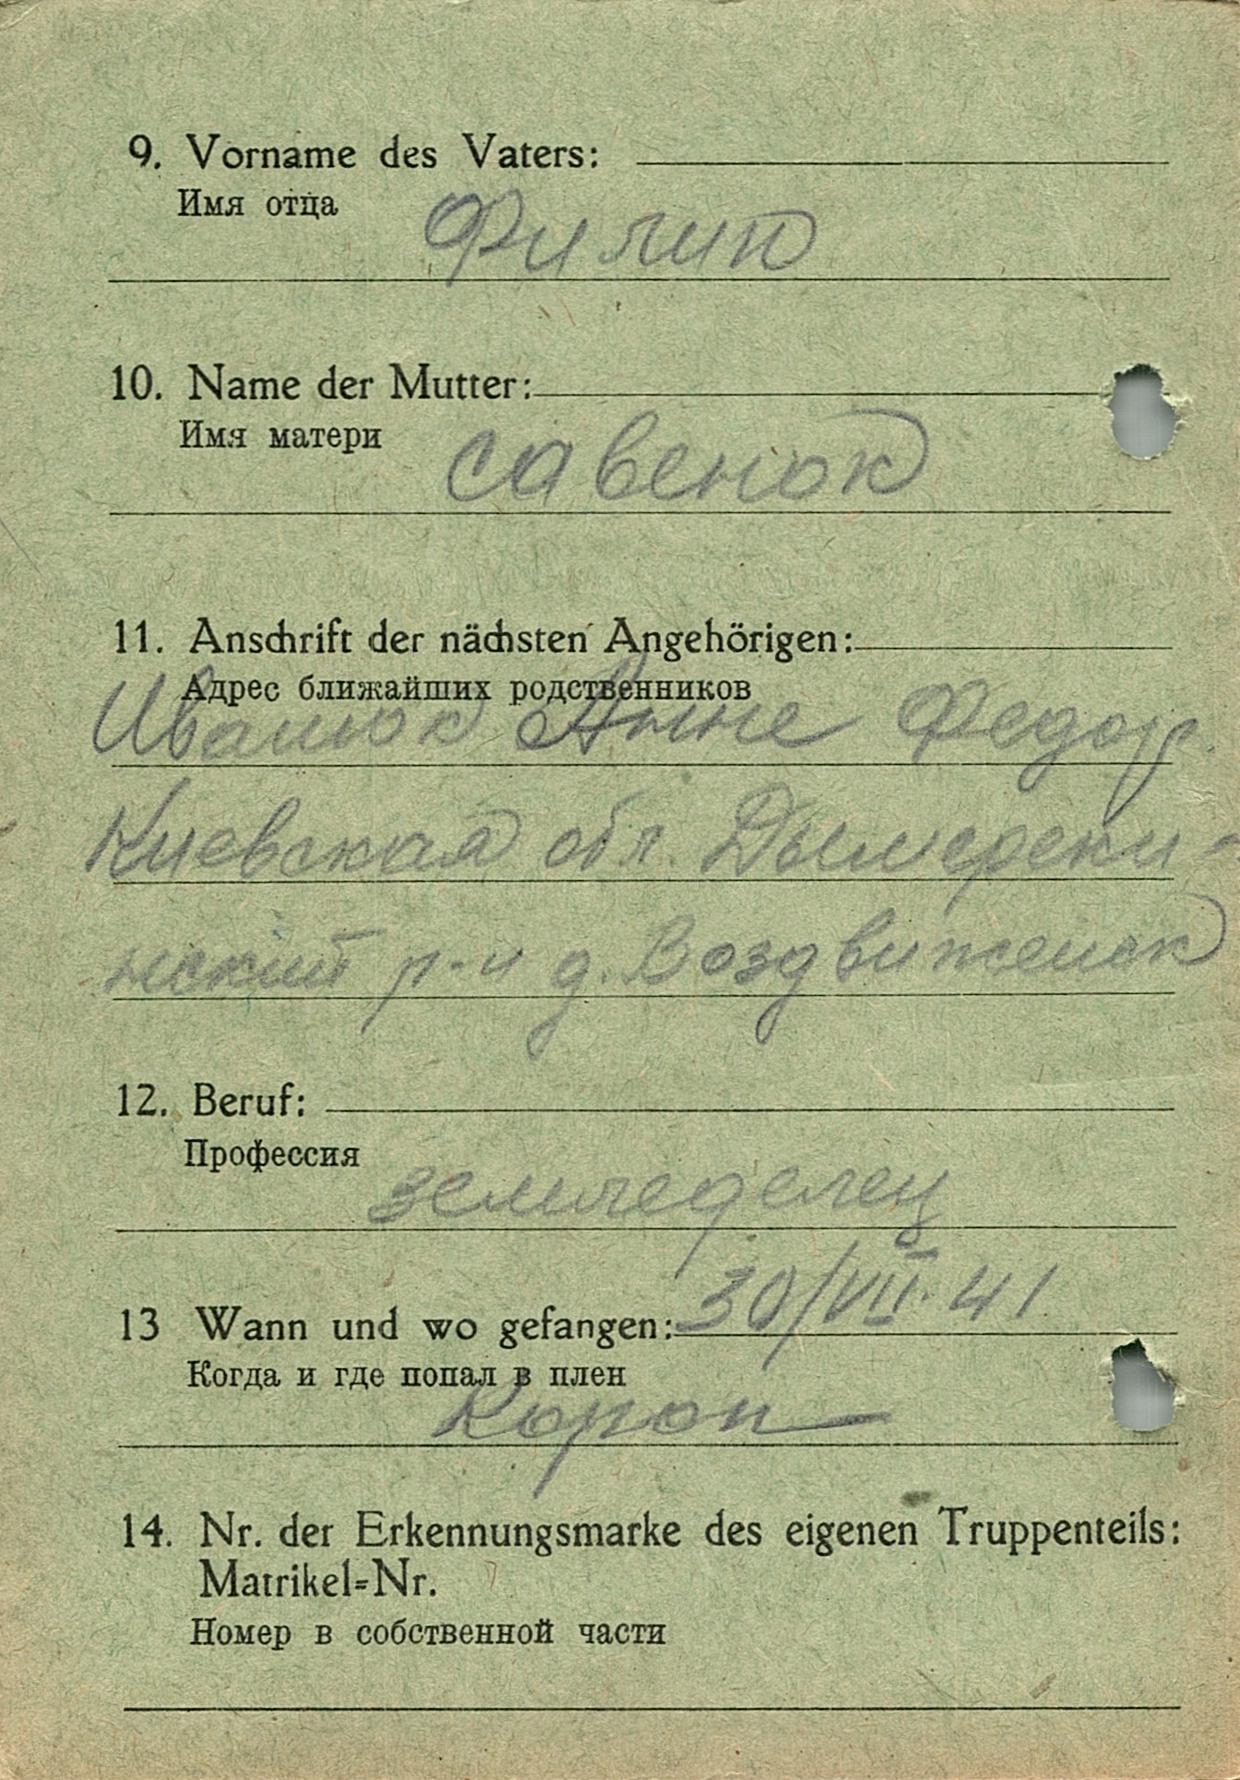 9. Vorname des Vaters:
Имя отца
Филип
10. Name der Mutter:
Имя матери
савенок
11. Anschrift der nächsten Angehörigen:
Адрес ближайших родственников
Иванюк Анне Федор.
Киевская обл. Дымерски-
нский р-н д. Воздвиженск
12. Beruf:
Профессия
земледелец
13 Wann und wo gefangen: 30/VII.41
Когда и где попал в плен
Короп
14. Nr. der Erkennungsmarke des eigenen Truppenteils:
Matrikel=Nr.
Номер в собственной части